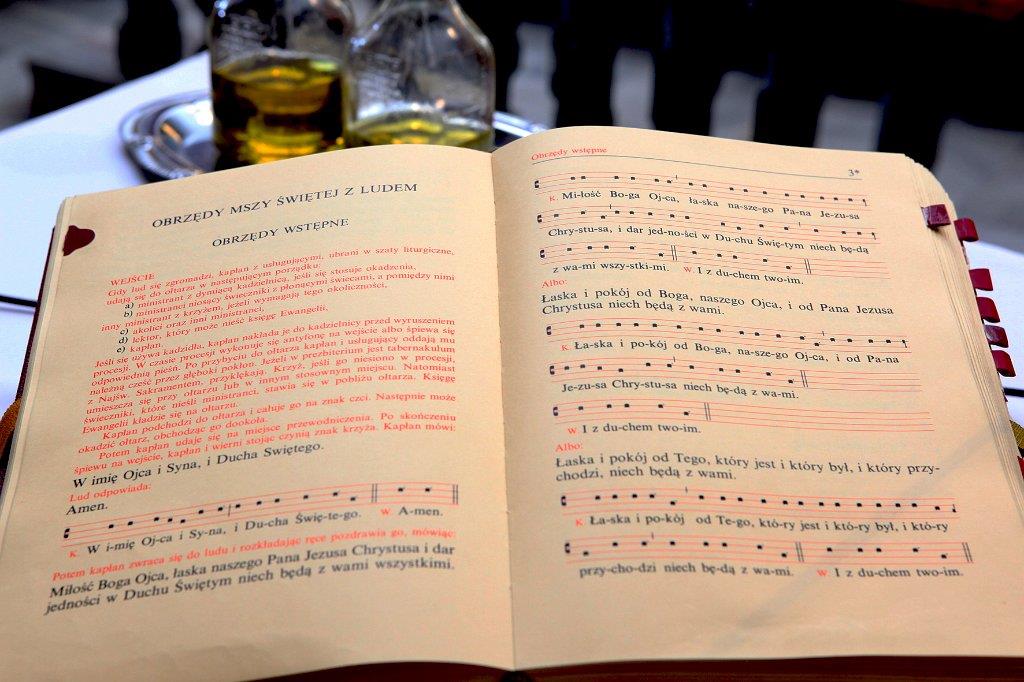 OBRZĘDY MSZY ŚWIĘTEJ Z LUDEM
OBRZĘDY WSTĘPNE
WEJŚCIE
Gdy lud się zgromadzi, kapłan z usługującymi, ubrani w szaty liturgiczne,
udają się do ołtarza w następującym porządku:
a) ministrant z dymiącą kadzielnicą, jeśli się stosuje okadzenia,
b) ministranci niosący świeczniki z płonącymi świecami, a pomiędzy nimi
inny ministrant z krzyżem, jeżeli wymagają tego okoliczności,
c) akolici oraz inni ministranci,
d) lektor, który może nieść księgę Ewangelii,
e) kapłan.
Jeśli się używa kadzidła, kapłan nakłada je do kadzielnicy przed wyruszeniem
procesji. W czasie procesji wykonuje się antyfonę na wejście albo śpiewa się
odpowiednią pieśń. Po przybyciu do ołtarza kapłan i usługujący oddają mu
należną cześć przez głęboki pokłon. Jeżeli w prezbiterium jest tabernakulum
z Najśw. Sakramentem, przyklękają. Krzyż, jeśli go niesiono w procesji,
umieszcza się przy ołtarzu lub w innym stosownym miejscu. Natomiast
świeczniki, które nieśli ministranci, stawia się w pobliżu ołtarza. Księgę
Ewangelii kładzie się na ołtarzu.
Kapłan podchodzi do ołtarza i całuje go na znak czci. Następnie może
okadzić ołtarz, obchodząc go dookoła.
Potem kapłan udaje się na miejsce przewodniczenia. Po skończeniu
śpiewu na wejście, kapłan i wierni stojąc czynią znak krzyża. Kapłan mówi:
W imię Ojca i Syna, i Ducha Świętego.
Lud odpowiada:
Amen.
K. W i-mię Oj-ca i Sy-na, i Du-cha Świę-te-go. W. A-men.
Potem kapłan zwraca się do ludu i rozkładając ręce pozdrawia go, mówiąc:
Miłość Boga Ojca, łaska naszego Pana Jezusa Chrystusa i dar
jedności w Duchu Świętym niech będą z wami wszystkimi.
Obrzędy wstępne 3*
K. Mi-łość Bo-ga Oj-ca, ła-ska na-sze-go Pa-na Je-zu-sa
Chry-stu-sa, i dar jed-no-ści w Du-chu Świę-tym niech bę-dą
z wa-mi wszy-stki-mi. W. I z du-chem two-im.
Albo:
Łaska i pokój od Boga, naszego Ojca, i od Pana Jezusa
Chrystusa niech będą z wami.
K. Ła-ska i po-kój od Bo-ga, na-sze-go Oj-ca, i od Pa-na
Je-zu-sa Chry-stu-sa niech bę-dą z wa-mi.
W. I z du-chem two-im.
Albo:
Łaska i pokój od Tego, który jest i który był, i który przy-
chodzi, niech będą z wami.
K. Ła-ska i po-kój od Te-go, któ-ry jest i któ-ry był, i któ-ry
przy-cho-dzi niech bę-dą z wa-mi. W. I z du-chem two-im.